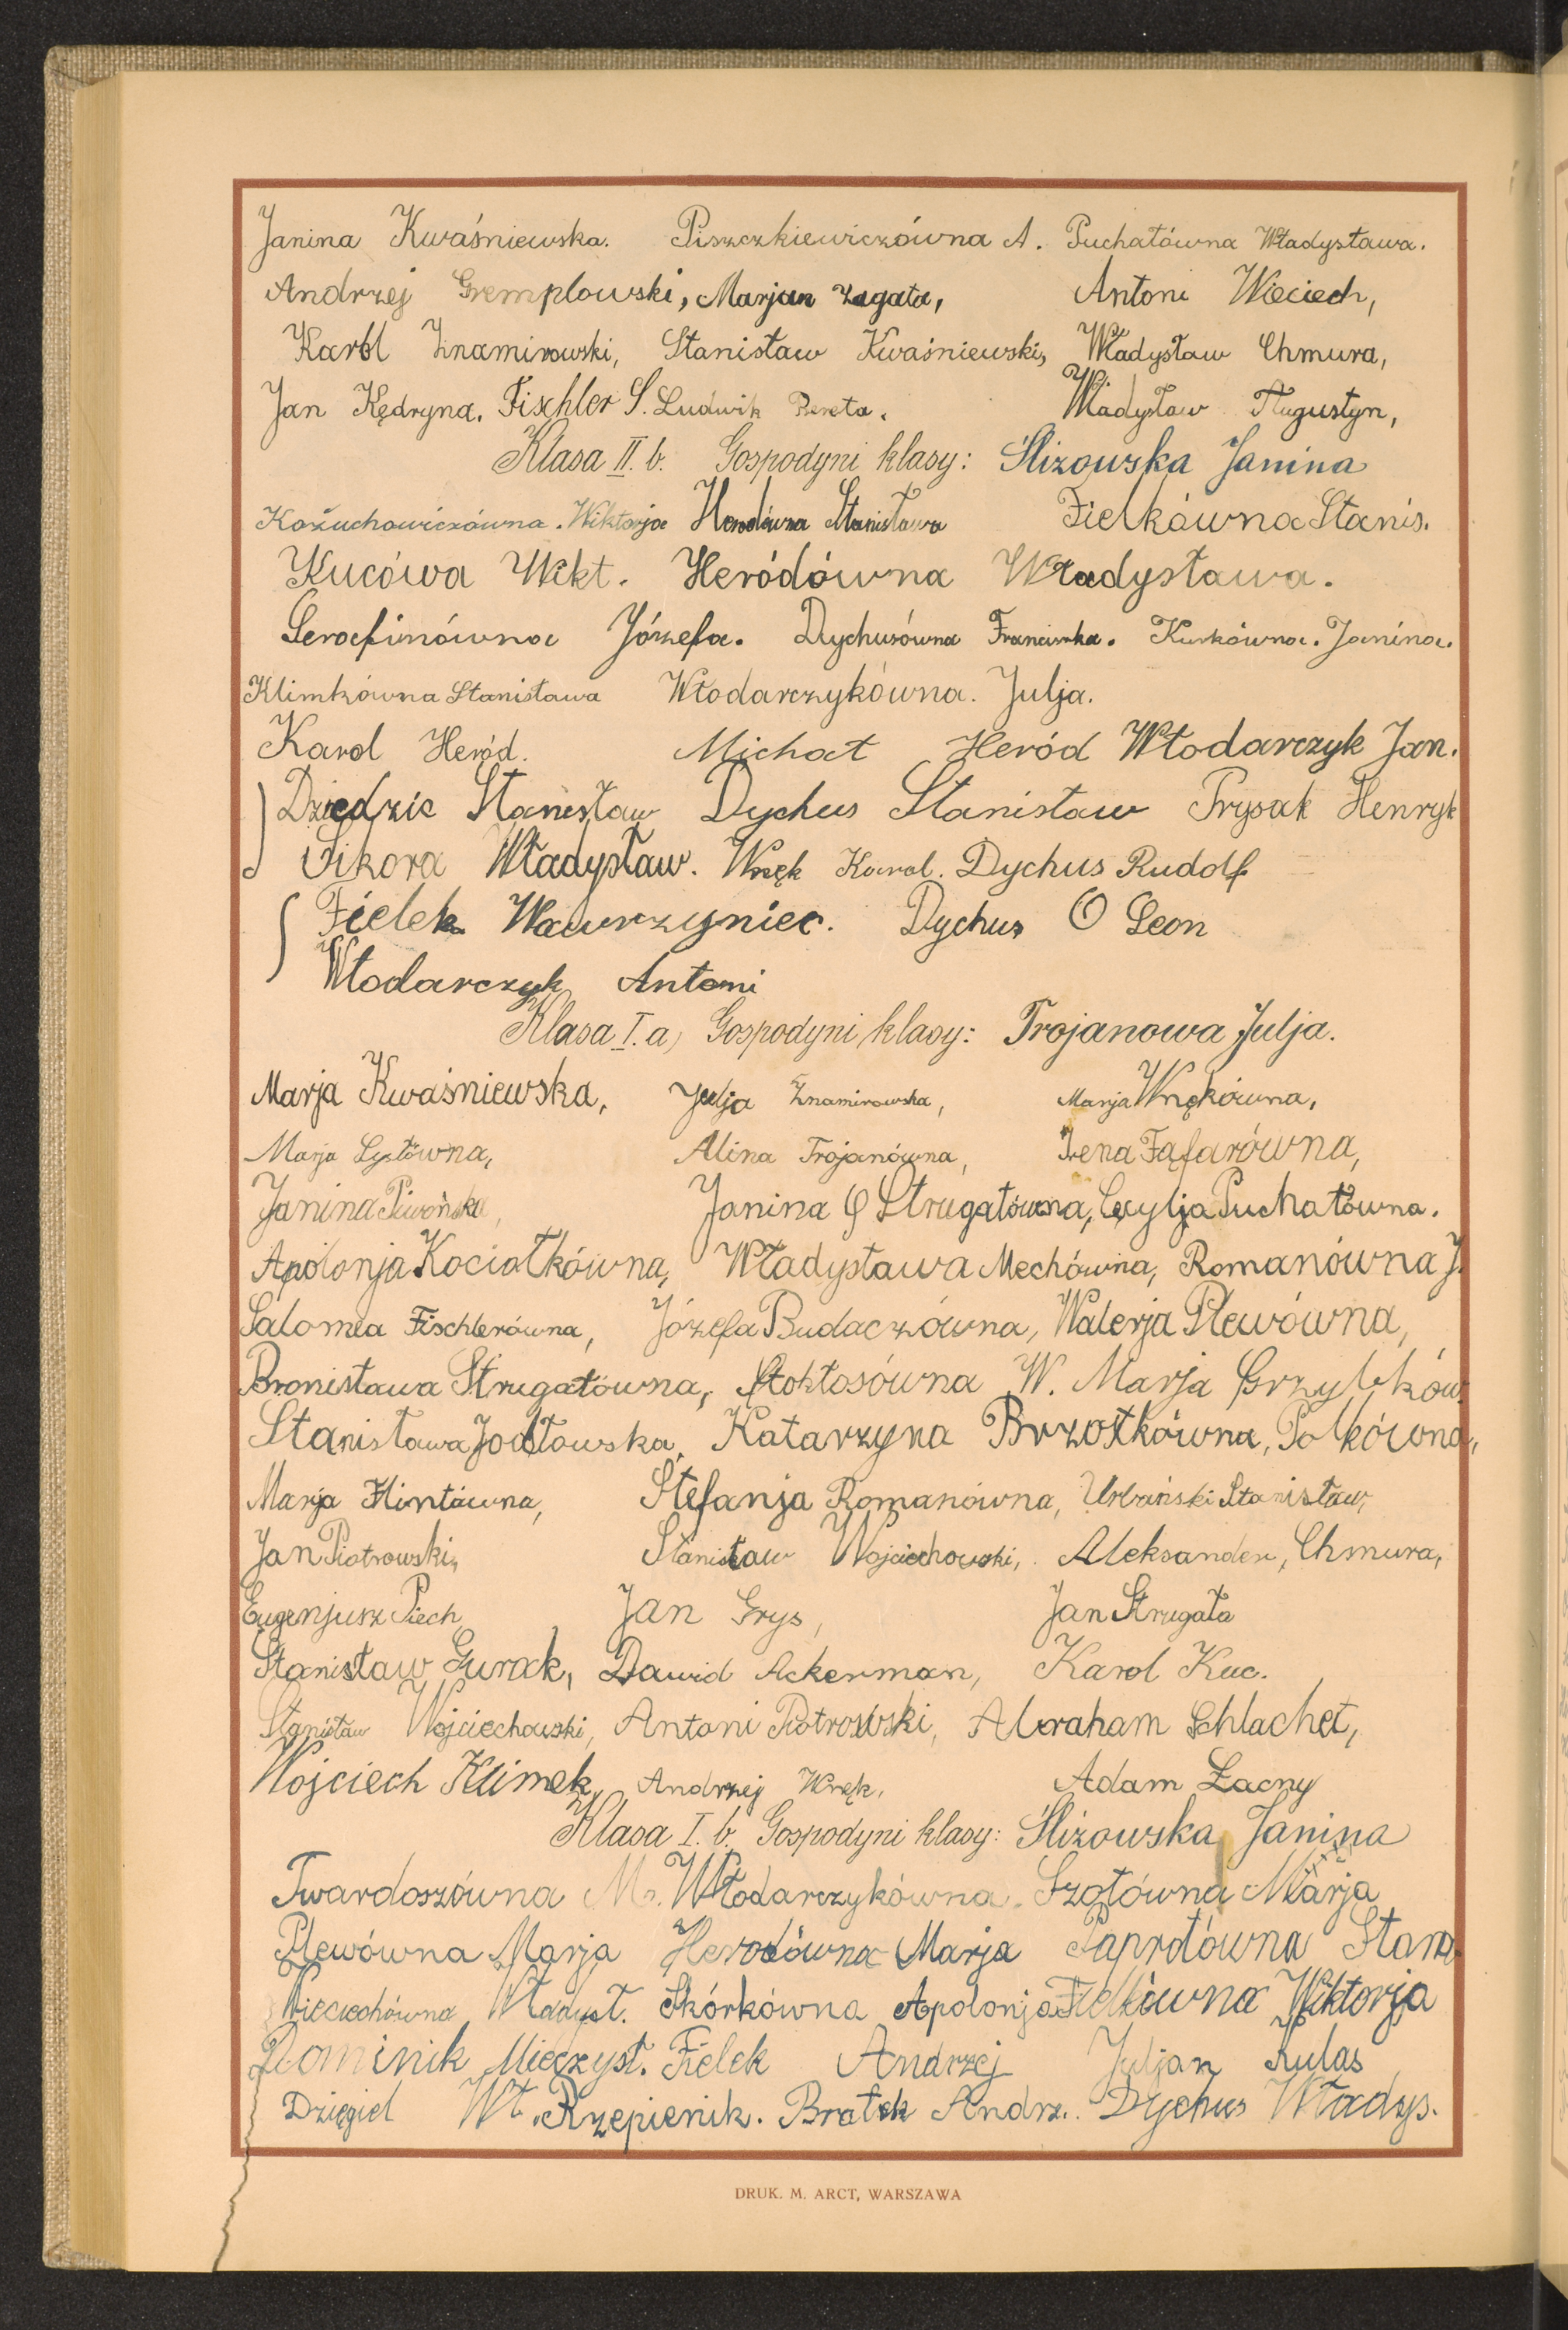 Janina Kwaśniewska. Piszczkiewiczówna A. Puchałówna Władysława.
Andrzej Gremplowski, Marjan Zagata, Antoni Wieciech,
Karol Znamirowski, Stanisław Kwaśniewski, Władysław Chmura,
Jan Kędryna. Fischler S. Ludwik Bereta. Władysław Augustyn,
Klasa II. b. Gospodyni klasy: Ślizowska Janina
Kożuchowiczówna. Wiktorja Herodówna Stanisława Fielkówna Stanis.
Kucówa Wikt. Heródówna Władysława.
Serafinówna Józefa. Dychusówna Franciszka. Kurkówna. Janina.
Klimkówna Stanisława Włodarczykówna. Julja.
Karol Heród. Michał Heród Włodarczyk Jan.
Dziedzic Stanisław Dychus Stanisław Prysak Henryk
Sikora Władysław. Wnęk Karol. Dychus Rudolf
Fielek Wawrzyniec. Dychus Leon
Włodarczyk Antoni
Klasa I. a) Gospodyni klasy: Trojanowa Julja.
Marja Kwaśniewska, Julja Znamirowska, Marja Wnękówna,
Marja Łystówna, Alina Trojanówna, Irena Fąfarówna,
Janina Piwońska, Janina Strugałówna, Cecylja Puchałówna.
Apolonja Kociołkówna, Władysława Mechówna, Romanówna J.
Salomea Fischlerówna, Józefa Budaczówna, Walerja Plewówna,
Bronisława Strugałówna, Stokłosówna W. Marja Grzybków.
Stanisława Jodłowska, Katarzyna Brzostkówna, Polkówna,
Marja Flintówna, Stefanja Romanówna, Urbański Stanisław,
Jan Piotrowski, Stanisław Wojciechowski, Aleksander, Chmura,
Eugenjusz Piech, Jan Grys, Jan Strugała
Stanisław Gurak, Dawid Ackerman, Karol Kuc.
Stanisław Wojciechowski, Antoni Piotrowski, Abraham Schlachet,
Wojciech Klimek, Andrzej Wnęk, Adam Łacny
Klasa I. b. Gospodyni klasy: Śliżowska Janina
Twardoszówna M. Włodarczykówna. Szotówna Marja
Plewówna Marja Herodówna Marja Paprotówna Stan.
Wieciechówna Władysł. Skórkówna Apolonja Fielkówna Wiktorja
Dominik Mieczysł. Fielek Andrzej Juljan Kulas
Dzięgiel Wł. Rzepienik. Bratek Andrz. Dychus Władys.
DRUK. M. ARCT, WARSZAWA